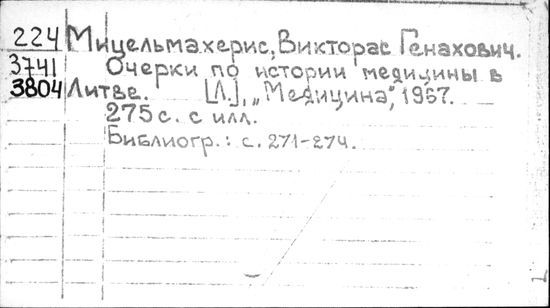 224 Мицельмахерис, Викторас Генахович.
3741 Очерки по истории медицины в
3804 Литве. [Л.], „Медицина", 1967.
275 с. с илл.
Библиогр.: с. 271-274.